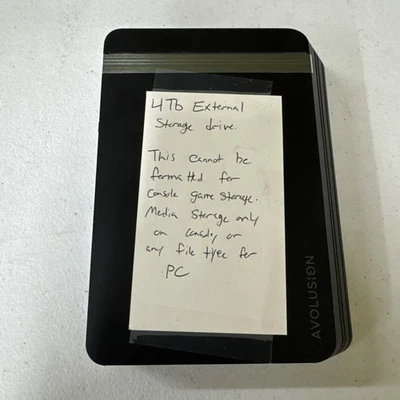 4Tb External
Storage drive.
This cannot be
formatted for
console game storage.
Media Storage only
on console, or
any file type for
PC
AVOLUSION